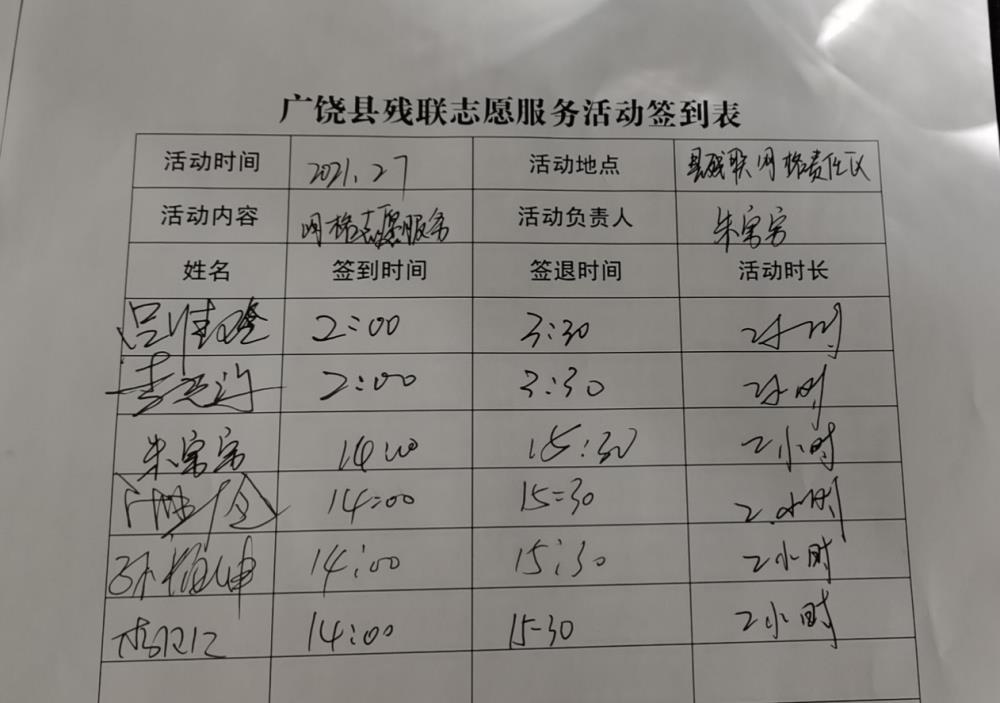 广饶县残联志愿服务活动签到表
活动时间 2021.27 活动地点 县残联网格责任区
活动内容 网格志愿服务 活动负责人 朱宝宝
姓名 签到时间 签退时间 活动时长
2:00 3:30 2小时
2:00 3:30 2小时
朱宝宝 14:00 15:30 2小时
14:00 15:30 2小时
14:00 15:30 2小时
14:00 15:30 2小时